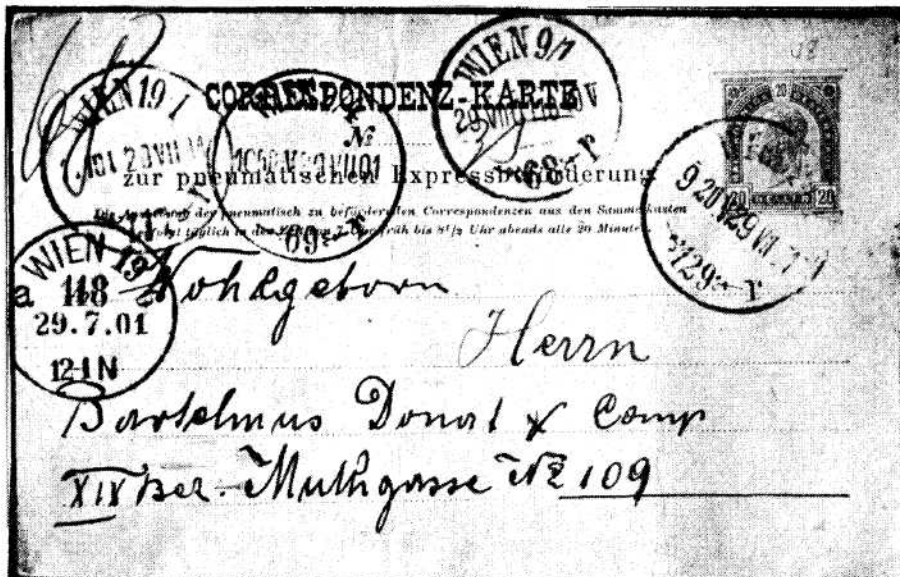 WIEN 9/1
CORRESPONDENZ-KARTE
№
zur pneumatischen Expressbeförderung
Die Aushebung der pneumatisch zu befördernden Correspondenzen aus den Sammelkasten
erfolgt täglich in der Zeit von 7 Uhr früh bis 8½ Uhr abends alle 20 Minuten.
20 20 20
WIEN 19 1
*68* r
*69*
*129* r
WIEN 19
a 118
29.7.01
12-1 N
Wohlgeborn
Herrn
Bartelmus Donat & Comp
XIX Bez. Muthgasse № 109